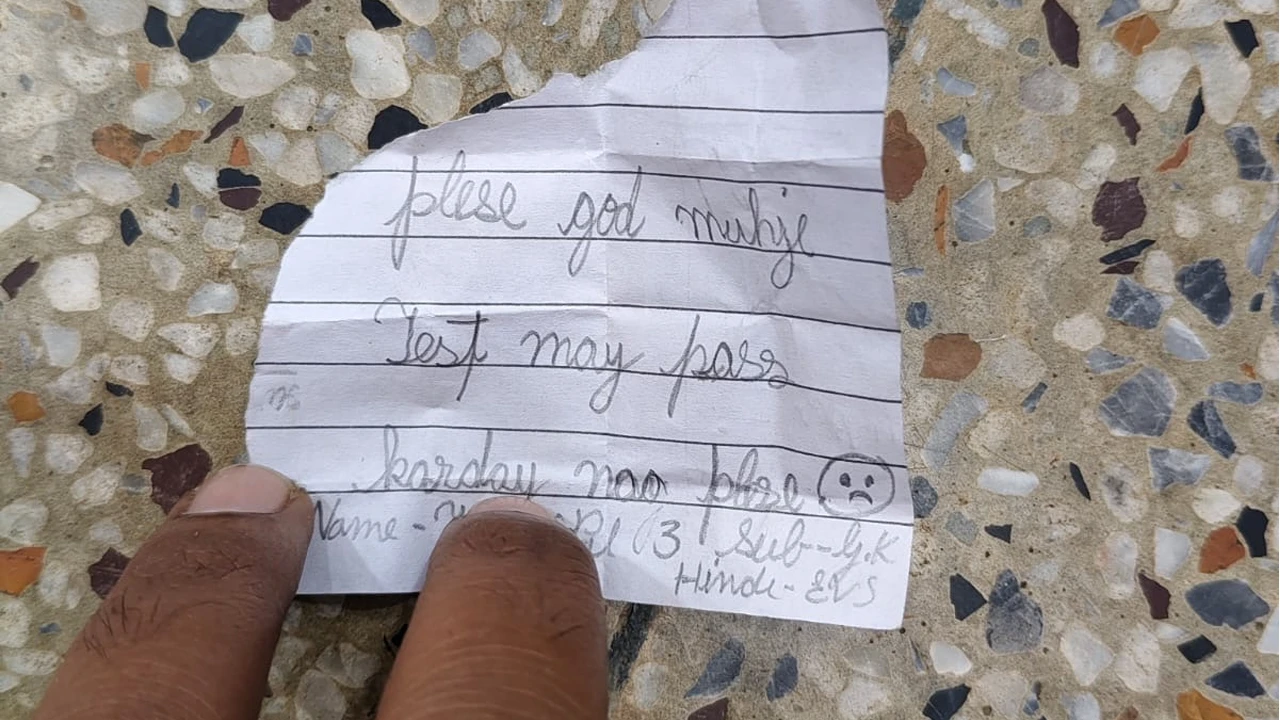 plese god muhje
Test may pass
karday nao plese
Name - 3 Sub-G.K
Hindi-EVS